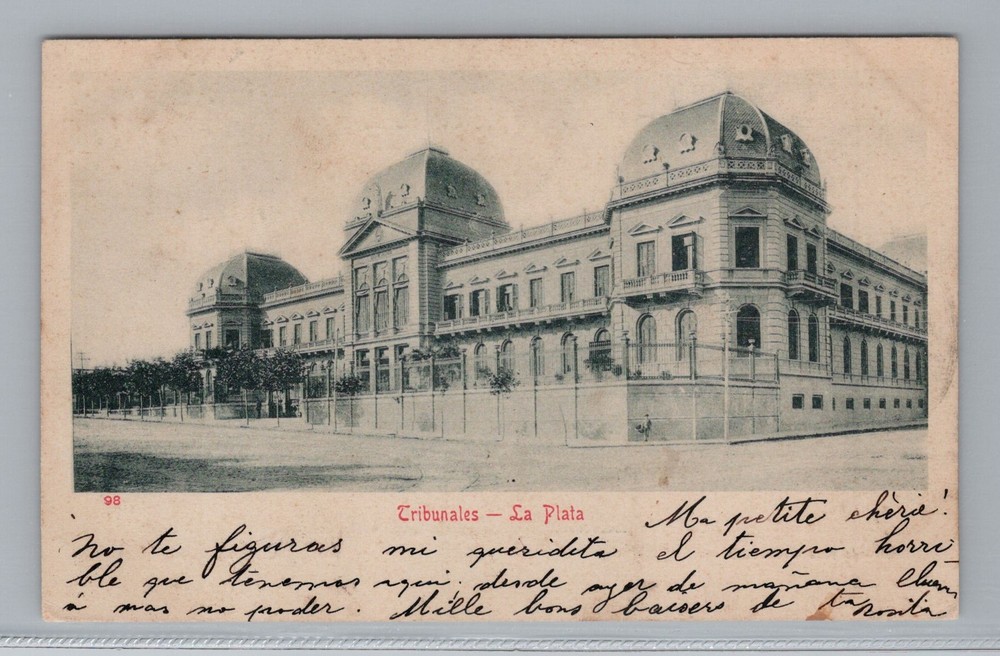 98
Tribunales — La Plata
Ma petite chèrie!
¡No te figuras mi queridita el tiempo horri
ble que tenemos aqui; desde ayer de mañana
á mas no poder. Mille bons baisers de ta Rosita